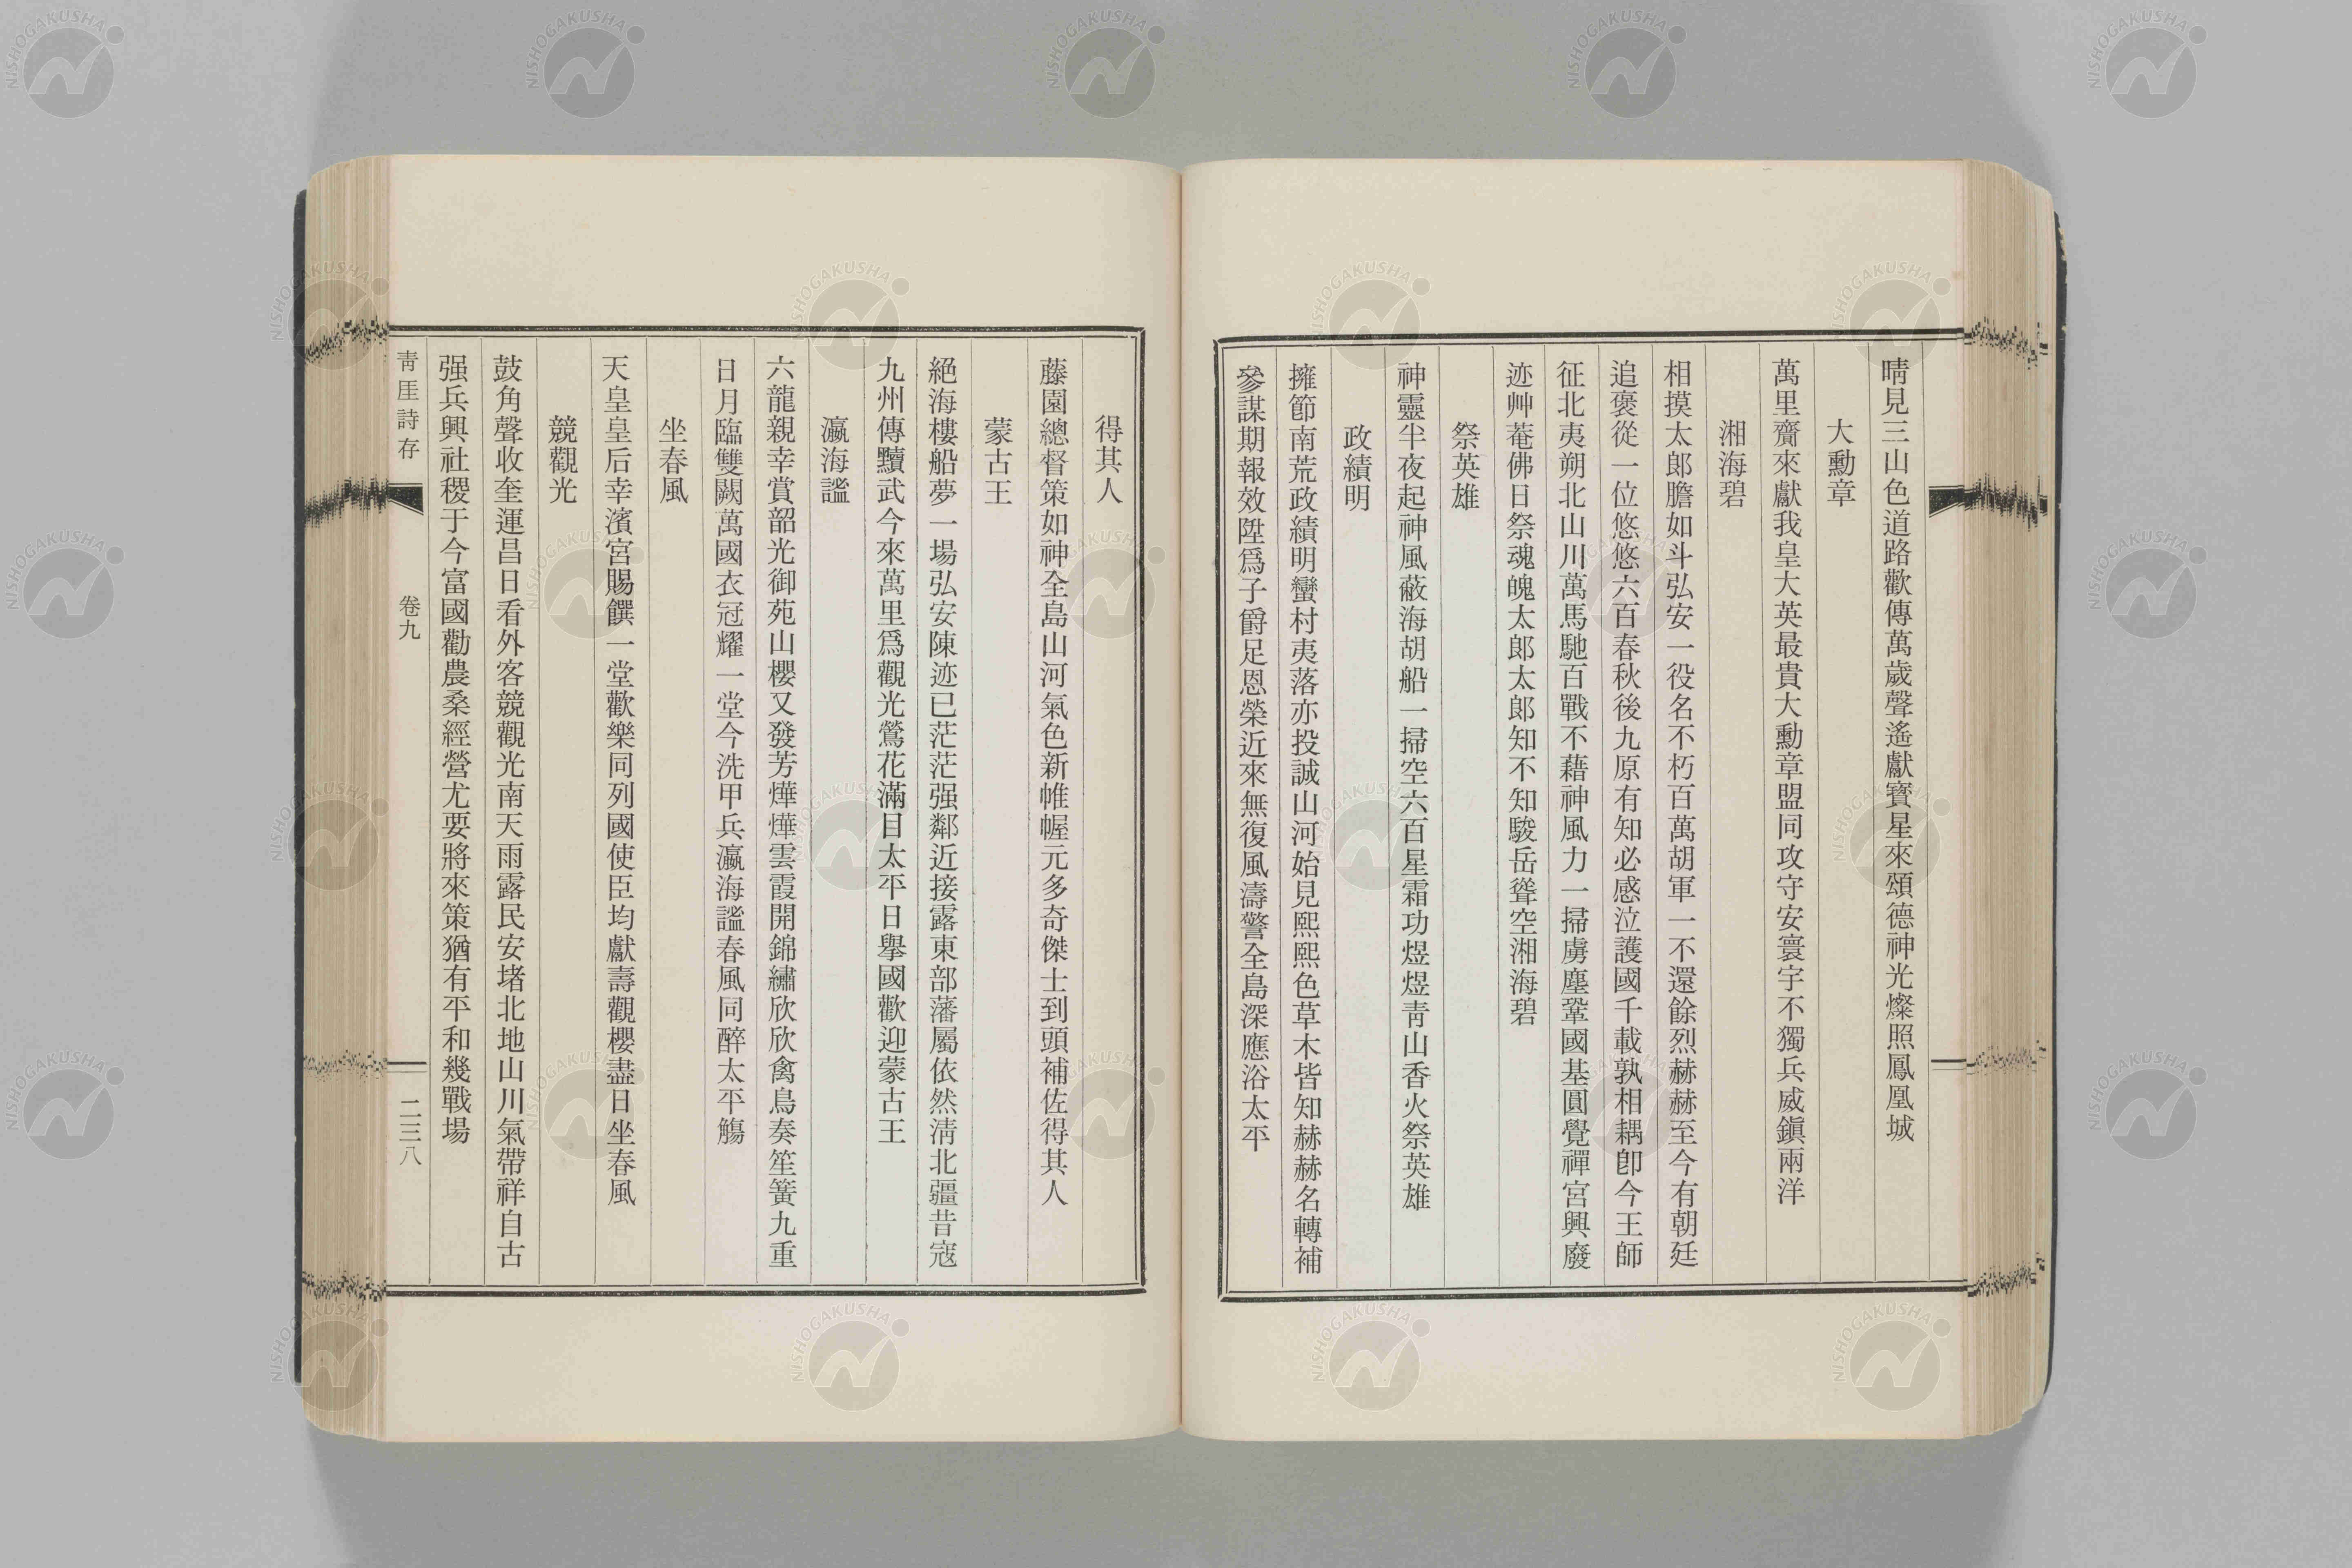 晴見三山色道路歡傳萬歲聲遙獻寶星來頌德神光燦照鳳凰城
大勳章
萬里齎來獻我皇大英最貴大勳章盟同攻守安寰宇不獨兵威鎭兩洋
湘海碧
相摸太郞膽如斗弘安一役名不朽百萬胡軍一不還餘烈赫赫至今有朝廷
追褒從一位悠悠六百春秋後九原有知必感泣護國千載孰相耦卽今王師
征北夷朔北山川萬馬馳百戰不藉神風力一掃虜塵鞏國基圓覺禪宮興廢
迹艸菴佛日祭魂魄太郞太郞知不知駿岳聳空湘海碧
祭英雄
神靈半夜起神風蔽海胡船一掃空六百星霜功煜煜靑山香火祭英雄
政績明
擁節南荒政績明蠻村夷落亦投誠山河始見熙熙色草木皆知赫赫名轉補
參謀期報效陞爲子爵足恩榮近來無復風濤警全島深應浴太平
得其人
藤園總督策如神全島山河氣色新帷幄元多奇傑士到頭補佐得其人
蒙古王
絕海樓船夢一場弘安陳迹已茫茫强鄰近接露東部藩屬依然淸北疆昔寇
九州傳黷武今來萬里爲觀光鶯花滿目太平日擧國歡迎蒙古王
瀛海謐
六龍親幸賞韶光御苑山櫻又發芳燁燁雲霞開錦繡欣欣禽鳥奏笙簧九重
日月臨雙闕萬國衣冠耀一堂今洗甲兵瀛海謐春風同醉太平觴
坐春風
天皇皇后幸濱宮賜饌一堂歡樂同列國使臣均獻壽觀櫻盡日坐春風
競觀光
鼓角聲收奎運昌日看外客競觀光南天雨露民安堵北地山川氣帶祥自古
强兵興社稷于今富國勸農桑經營尤要將來策猶有平和幾戰場
靑厓詩存
卷九
二三八
NISHOGAKUSHA